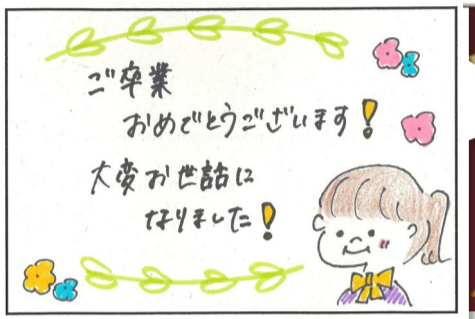 ご卒業
おめでとうございます!
大変お世話に
なりました!